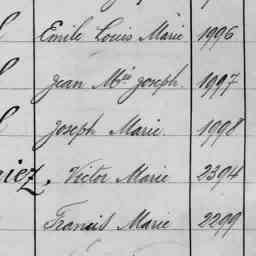 Emile Louis Marie 1996
Jean Mie Joseph. 1997
Joseph Marie. 1998
iez. Victor Marie 2394
Francis Marie 2299